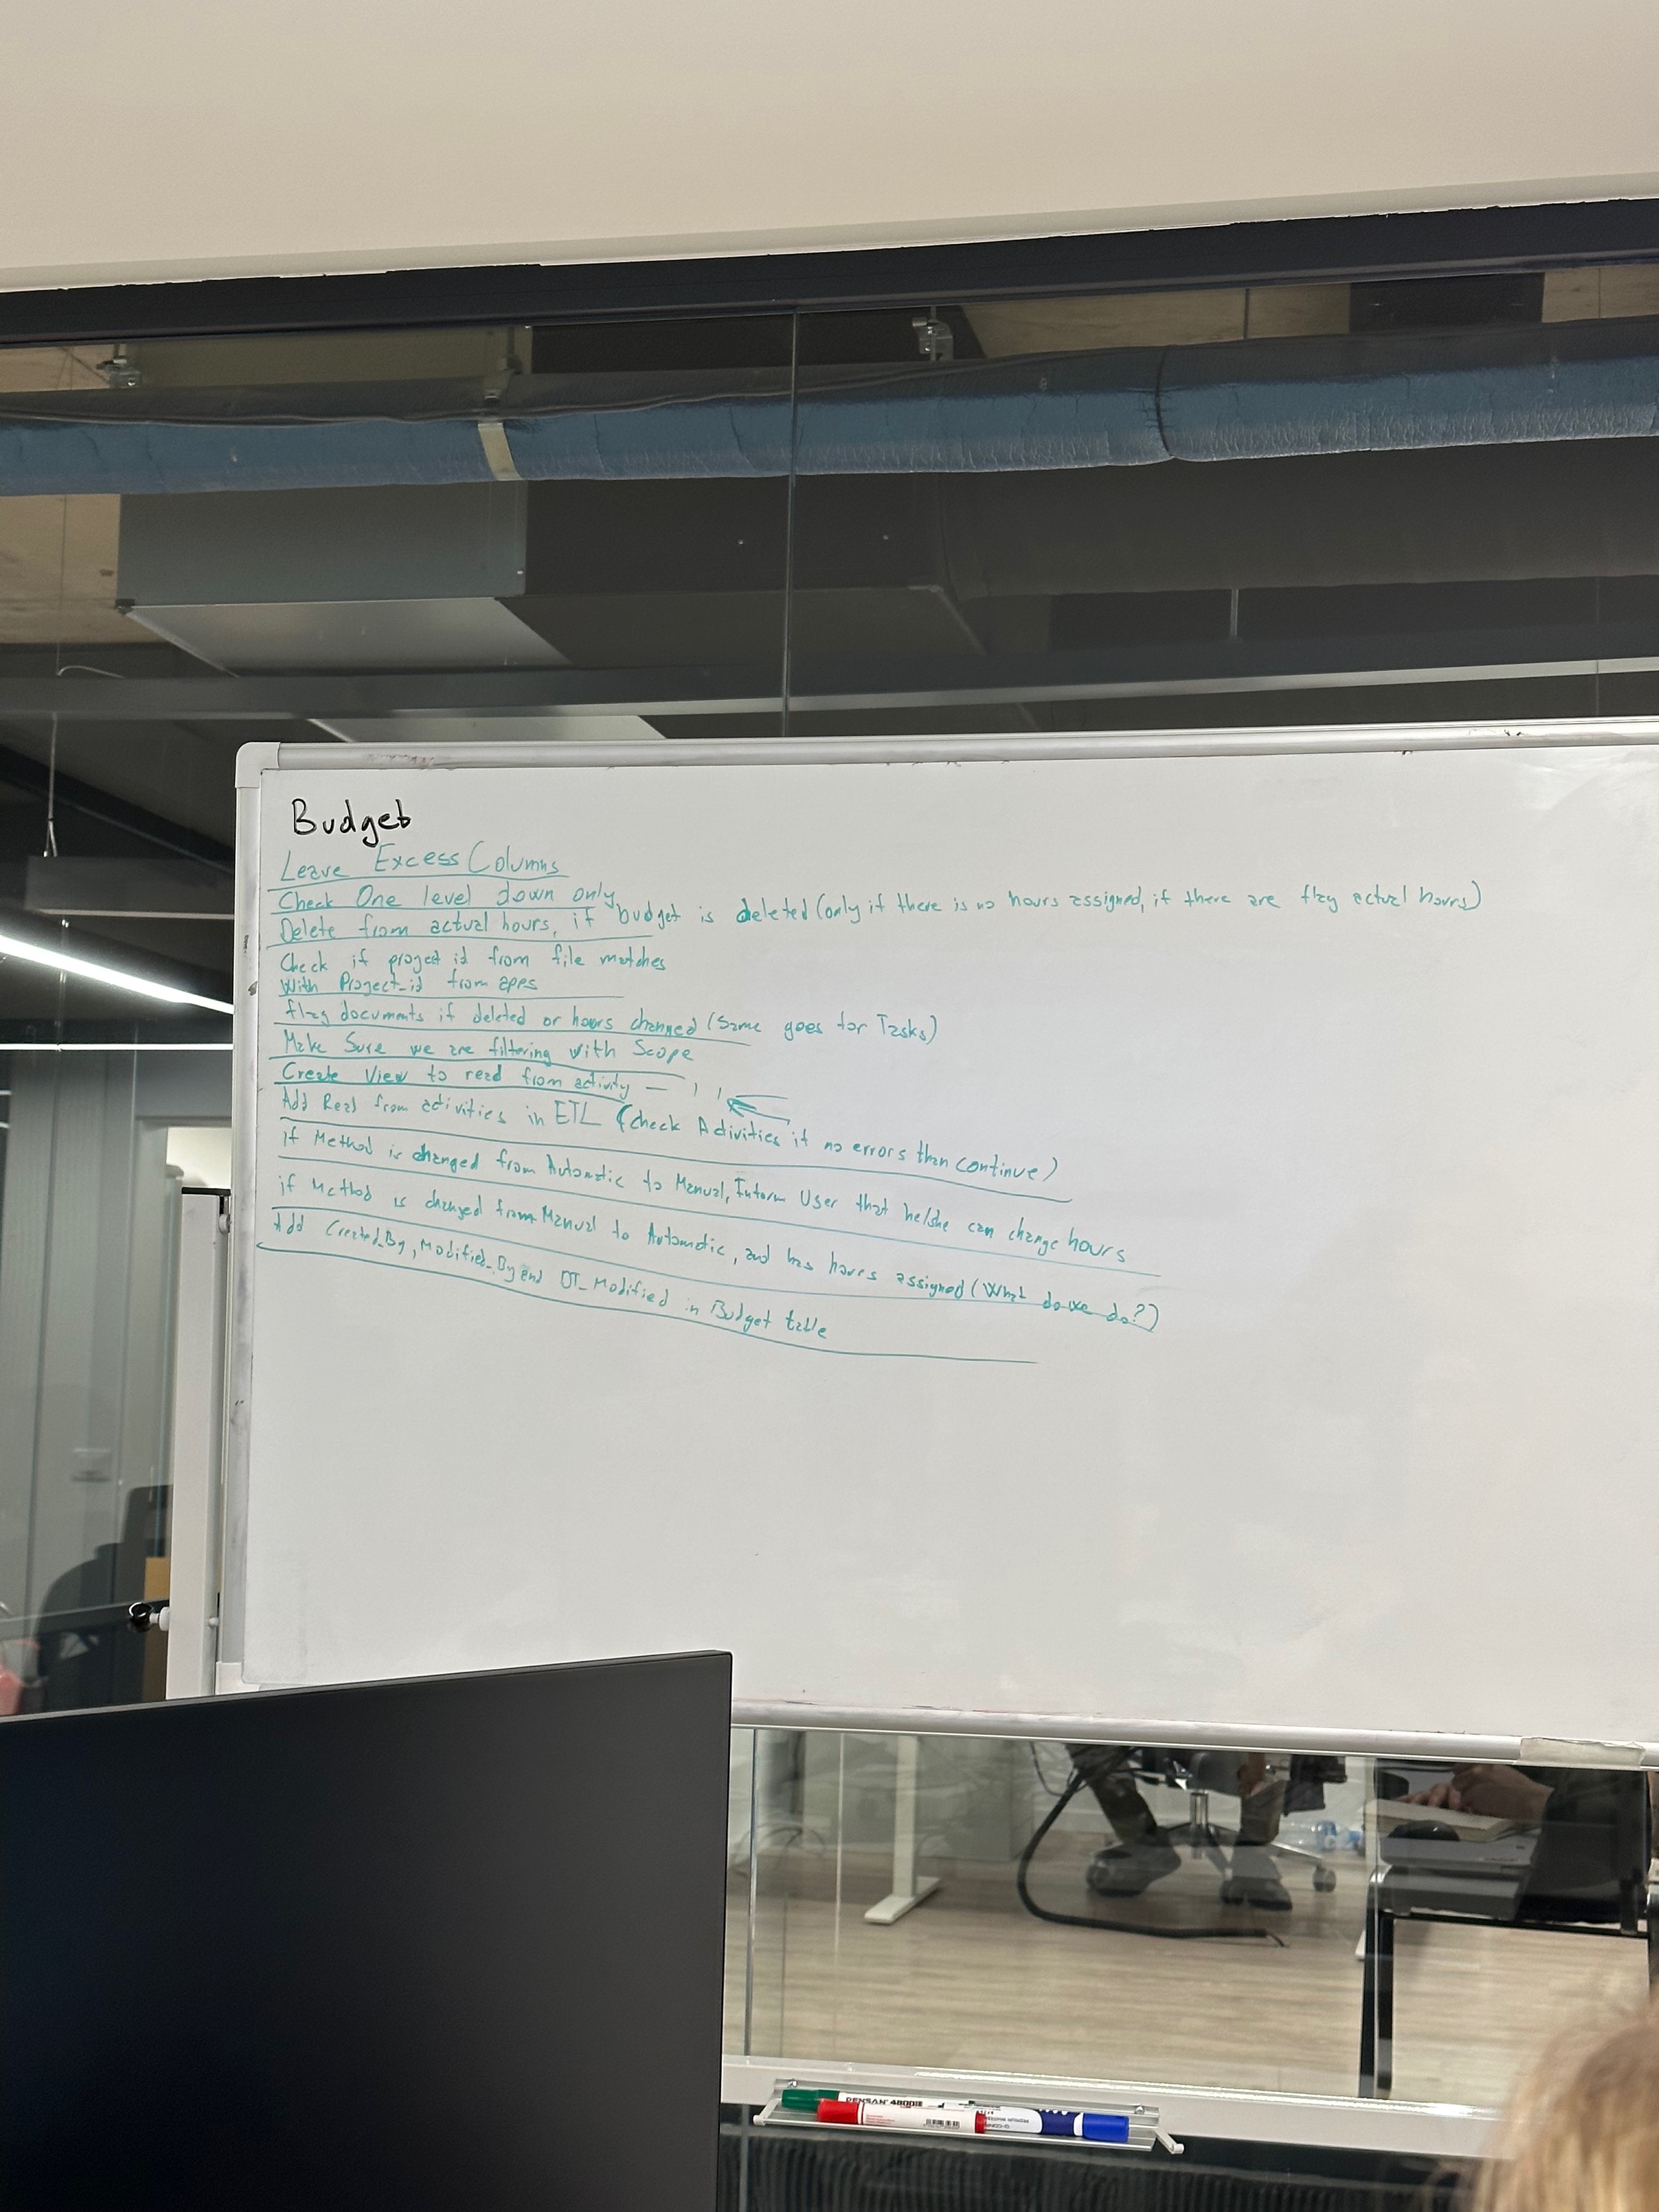 Budget
Leave Excess Columns
Check One level down only
Delete from actual hours, if budget is deleted (only if there is no hours assigned, if there are flag actual hours)
Check if project id from file matches
With Project_id from apps
flag documents if deleted or hours changed (Same goes for Tasks)
Make Sure we are filtering with Scope
Create View to read from activity —
Add Read from activities in ETL (check Activities if no errors than continue)
if Method is changed from Automatic to Manual, Inform User that he/she can change hours
if Method is changed from Manual to Automatic, and has hours assigned (What do we do?)
Add Created_By, Modified_By and DT_Modified in Budget table
PENSAN 4800